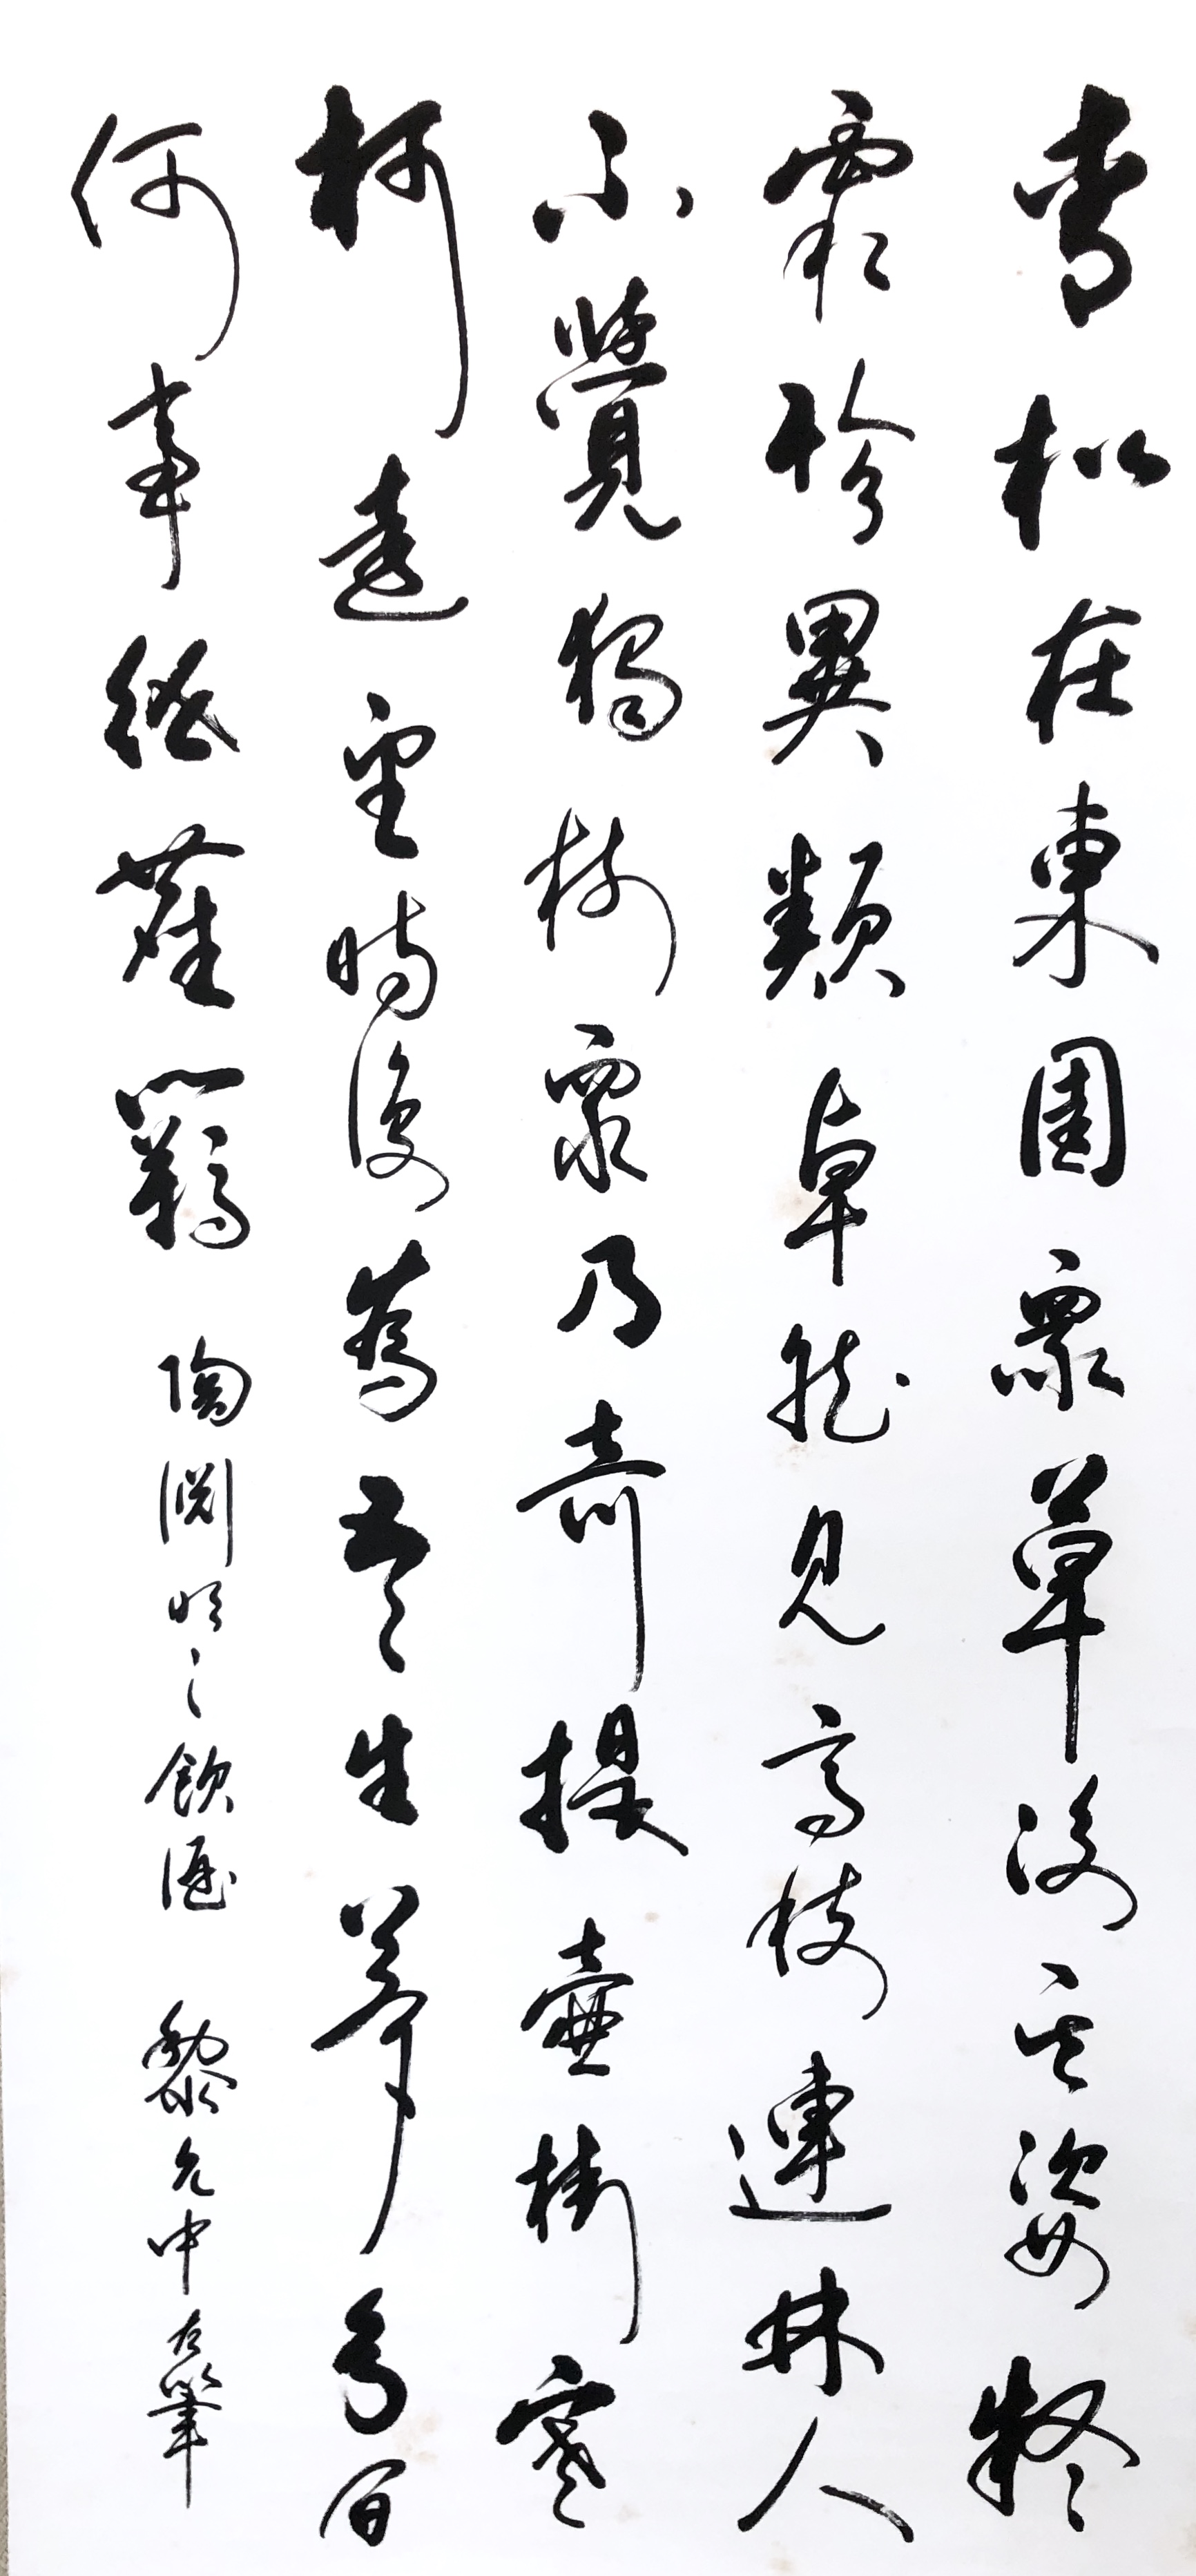 青松在東園眾草沒其姿凝
霜殄異類卓然見高枝連林人
不覺獨樹眾乃奇提壺掛寒
柯遠望時復為吾生夢幻間
何事紲塵羈 陶淵明之飲酒 黎允中左筆